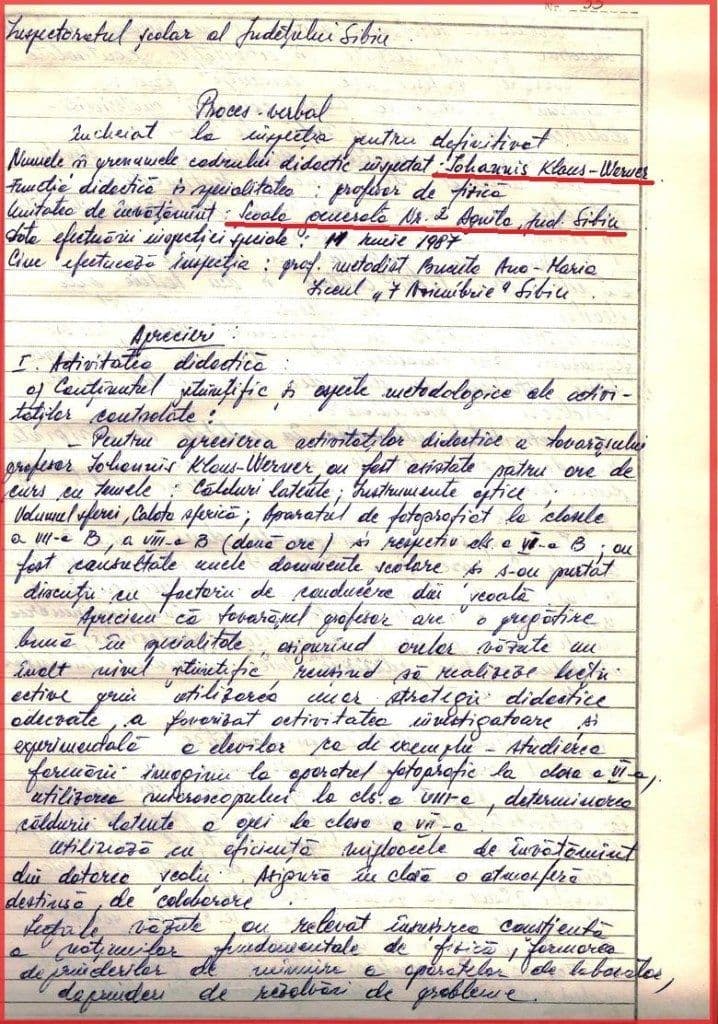 Nr. 33
Inspectoratul școlar al Județului Sibiu.
Proces-verbal
încheiat la inspecția pentru definitivat
Numele și prenumele cadrului didactic inspectat: Johannis Klaus-Werner
Funcția didactică și specialitatea: profesor de fizică
Unitatea de învățămînt: Școala generală Nr. 2 Agnita, jud. Sibiu
Data efectuării inspecției speciale: 11 iunie 1987
Cine efectuează inspecția: prof. metodist Ana-Maria
Liceul „7 Noiembrie" Sibiu.
Aprecieri:
I. Activitatea didactică:
a) Conținutul științific și aspecte metodologice ale activi-
tăților controlate:
- Pentru aprecierea activităților didactice a tovarășului
profesor Johannis Klaus-Werner au fost asistate patru ore de
curs cu temele: Călduri latente; Instrumente optice;
Volumul sferei, Calota sferică; Aparatul de fotografiat la clasele
a VII-a B, a VIII-a B (două ore) și respectiv cls. a VI-a B; au
fost consultate unele documente școlare și s-au purtat
discuții cu factorii de conducere din școală
Apreciem că tovarășul profesor are o pregătire
bună în specialitate, asigurînd orelor văzute un
înalt nivel științific reușind să realizeze lecții
active prin utilizarea unor strategii didactice
adecvate, a favorizat activitatea investigatoare și
experimentală a elevilor ca de exemplu - studierea
formării imaginii la aparatul fotografic la clasa a VI-a,
utilizarea microscopului la cls. a VIII-a, determinarea
căldurii latente a gheții la clasa a VII-a
Utilizează cu eficiență mijloacele de învățămînt
din dotarea școlii. Asigură în clasă o atmosferă
destinsă, de colaborare.
Lecțiile văzute au relevat însușirea conștientă
a noțiunilor fundamentale de fizică, formarea
deprinderilor de mînuire a aparatelor de laborator,
deprinderi de rezolvări de probleme.